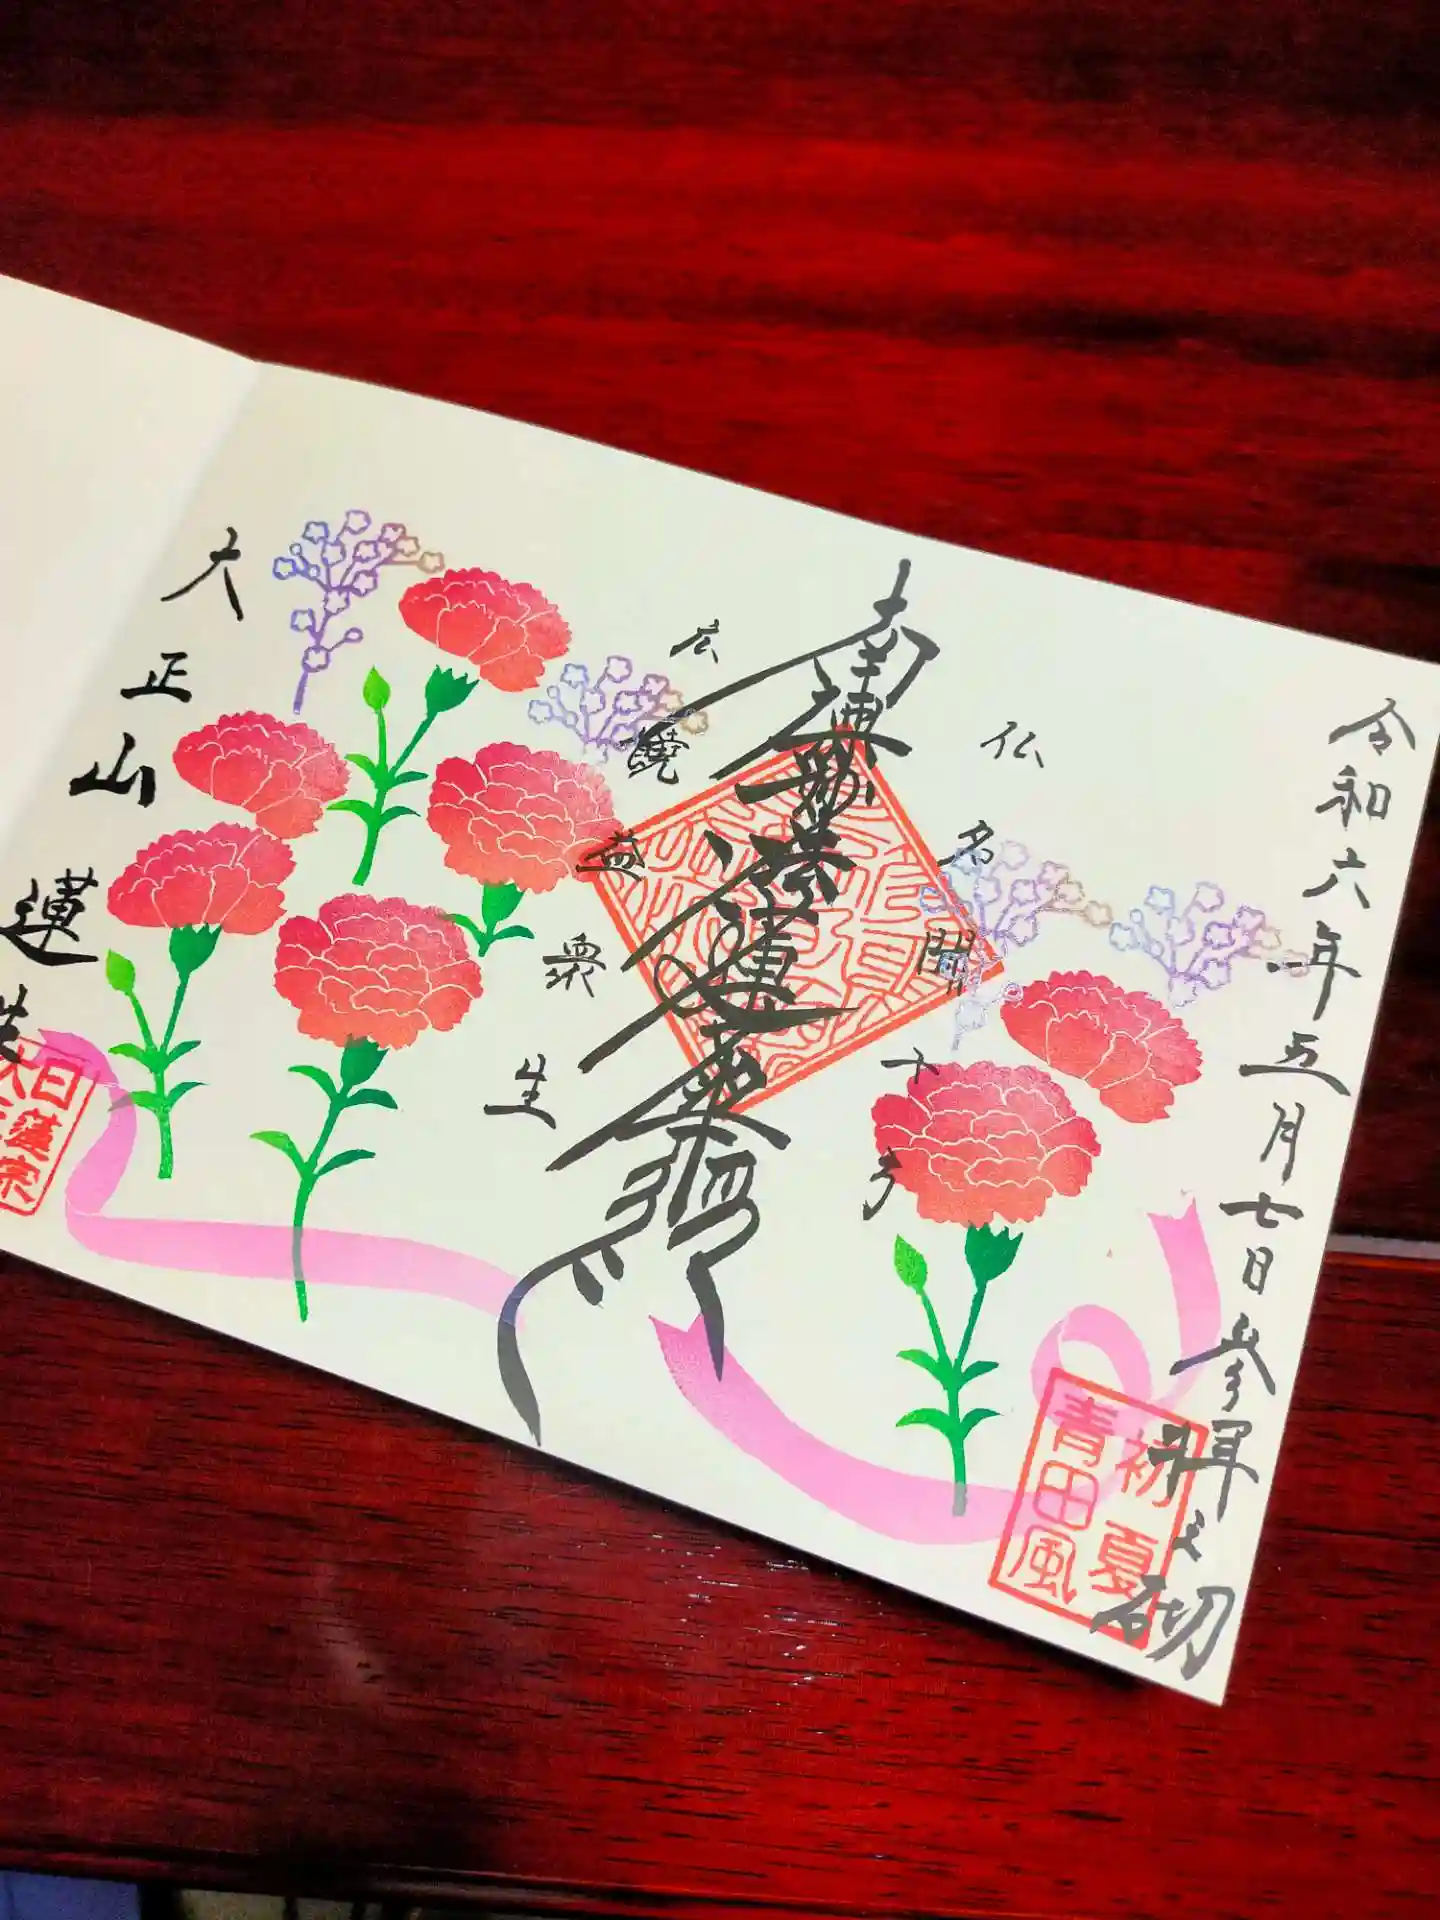 令和六年五月七日参拝之砌
初夏
青田風
仏名聞十方
南無妙法蓮華経
広饒益衆生
大正山
蓮
日蓮宗